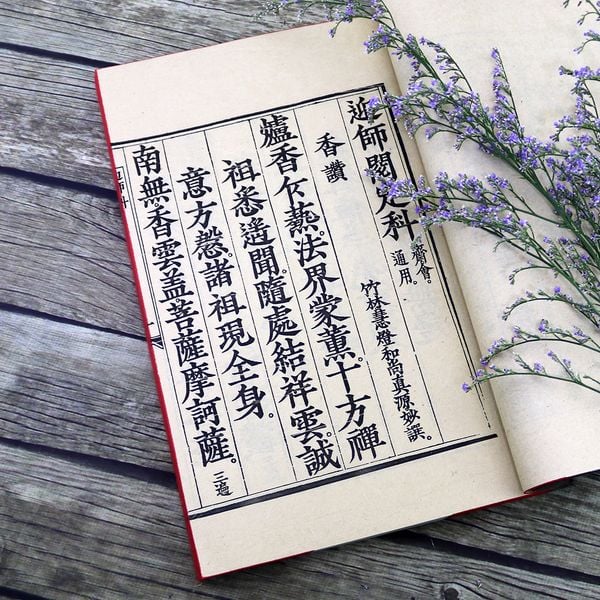 近師閱定科 齋會。通用。
香讚 竹林慧燈和尚真源妙譔。
爐香乍爇。法界蒙薰。十方禪
祖悉遙聞。隨處結祥雲。誠
意方慇。諸祖現全身。
南無香雲盖菩薩摩訶薩。三遍